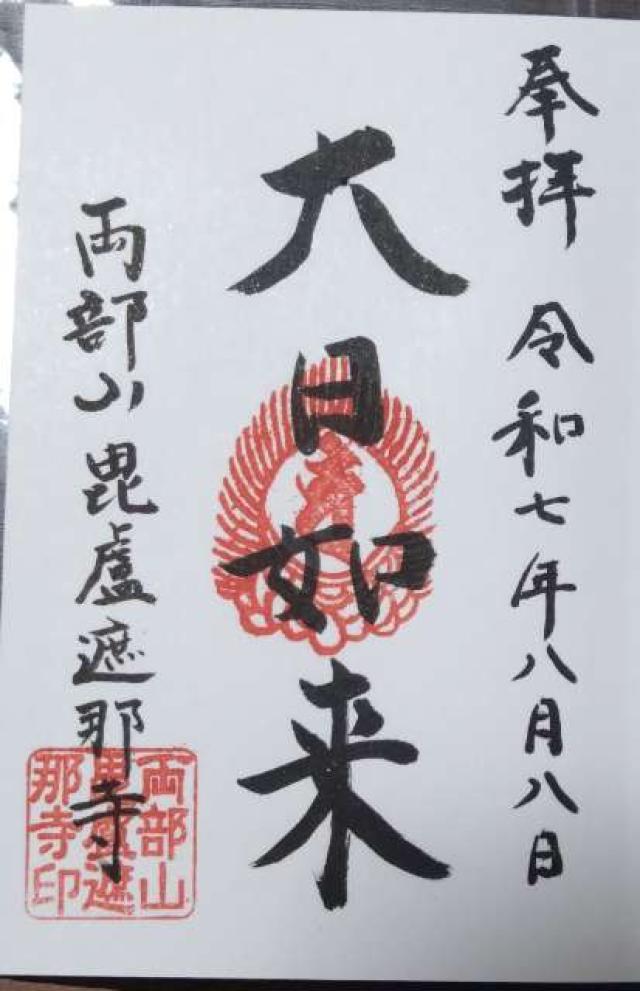 奉拝 令和七年八月八日
大日如来
両部山毘盧遮那寺
両部山
毘盧遮
那寺印